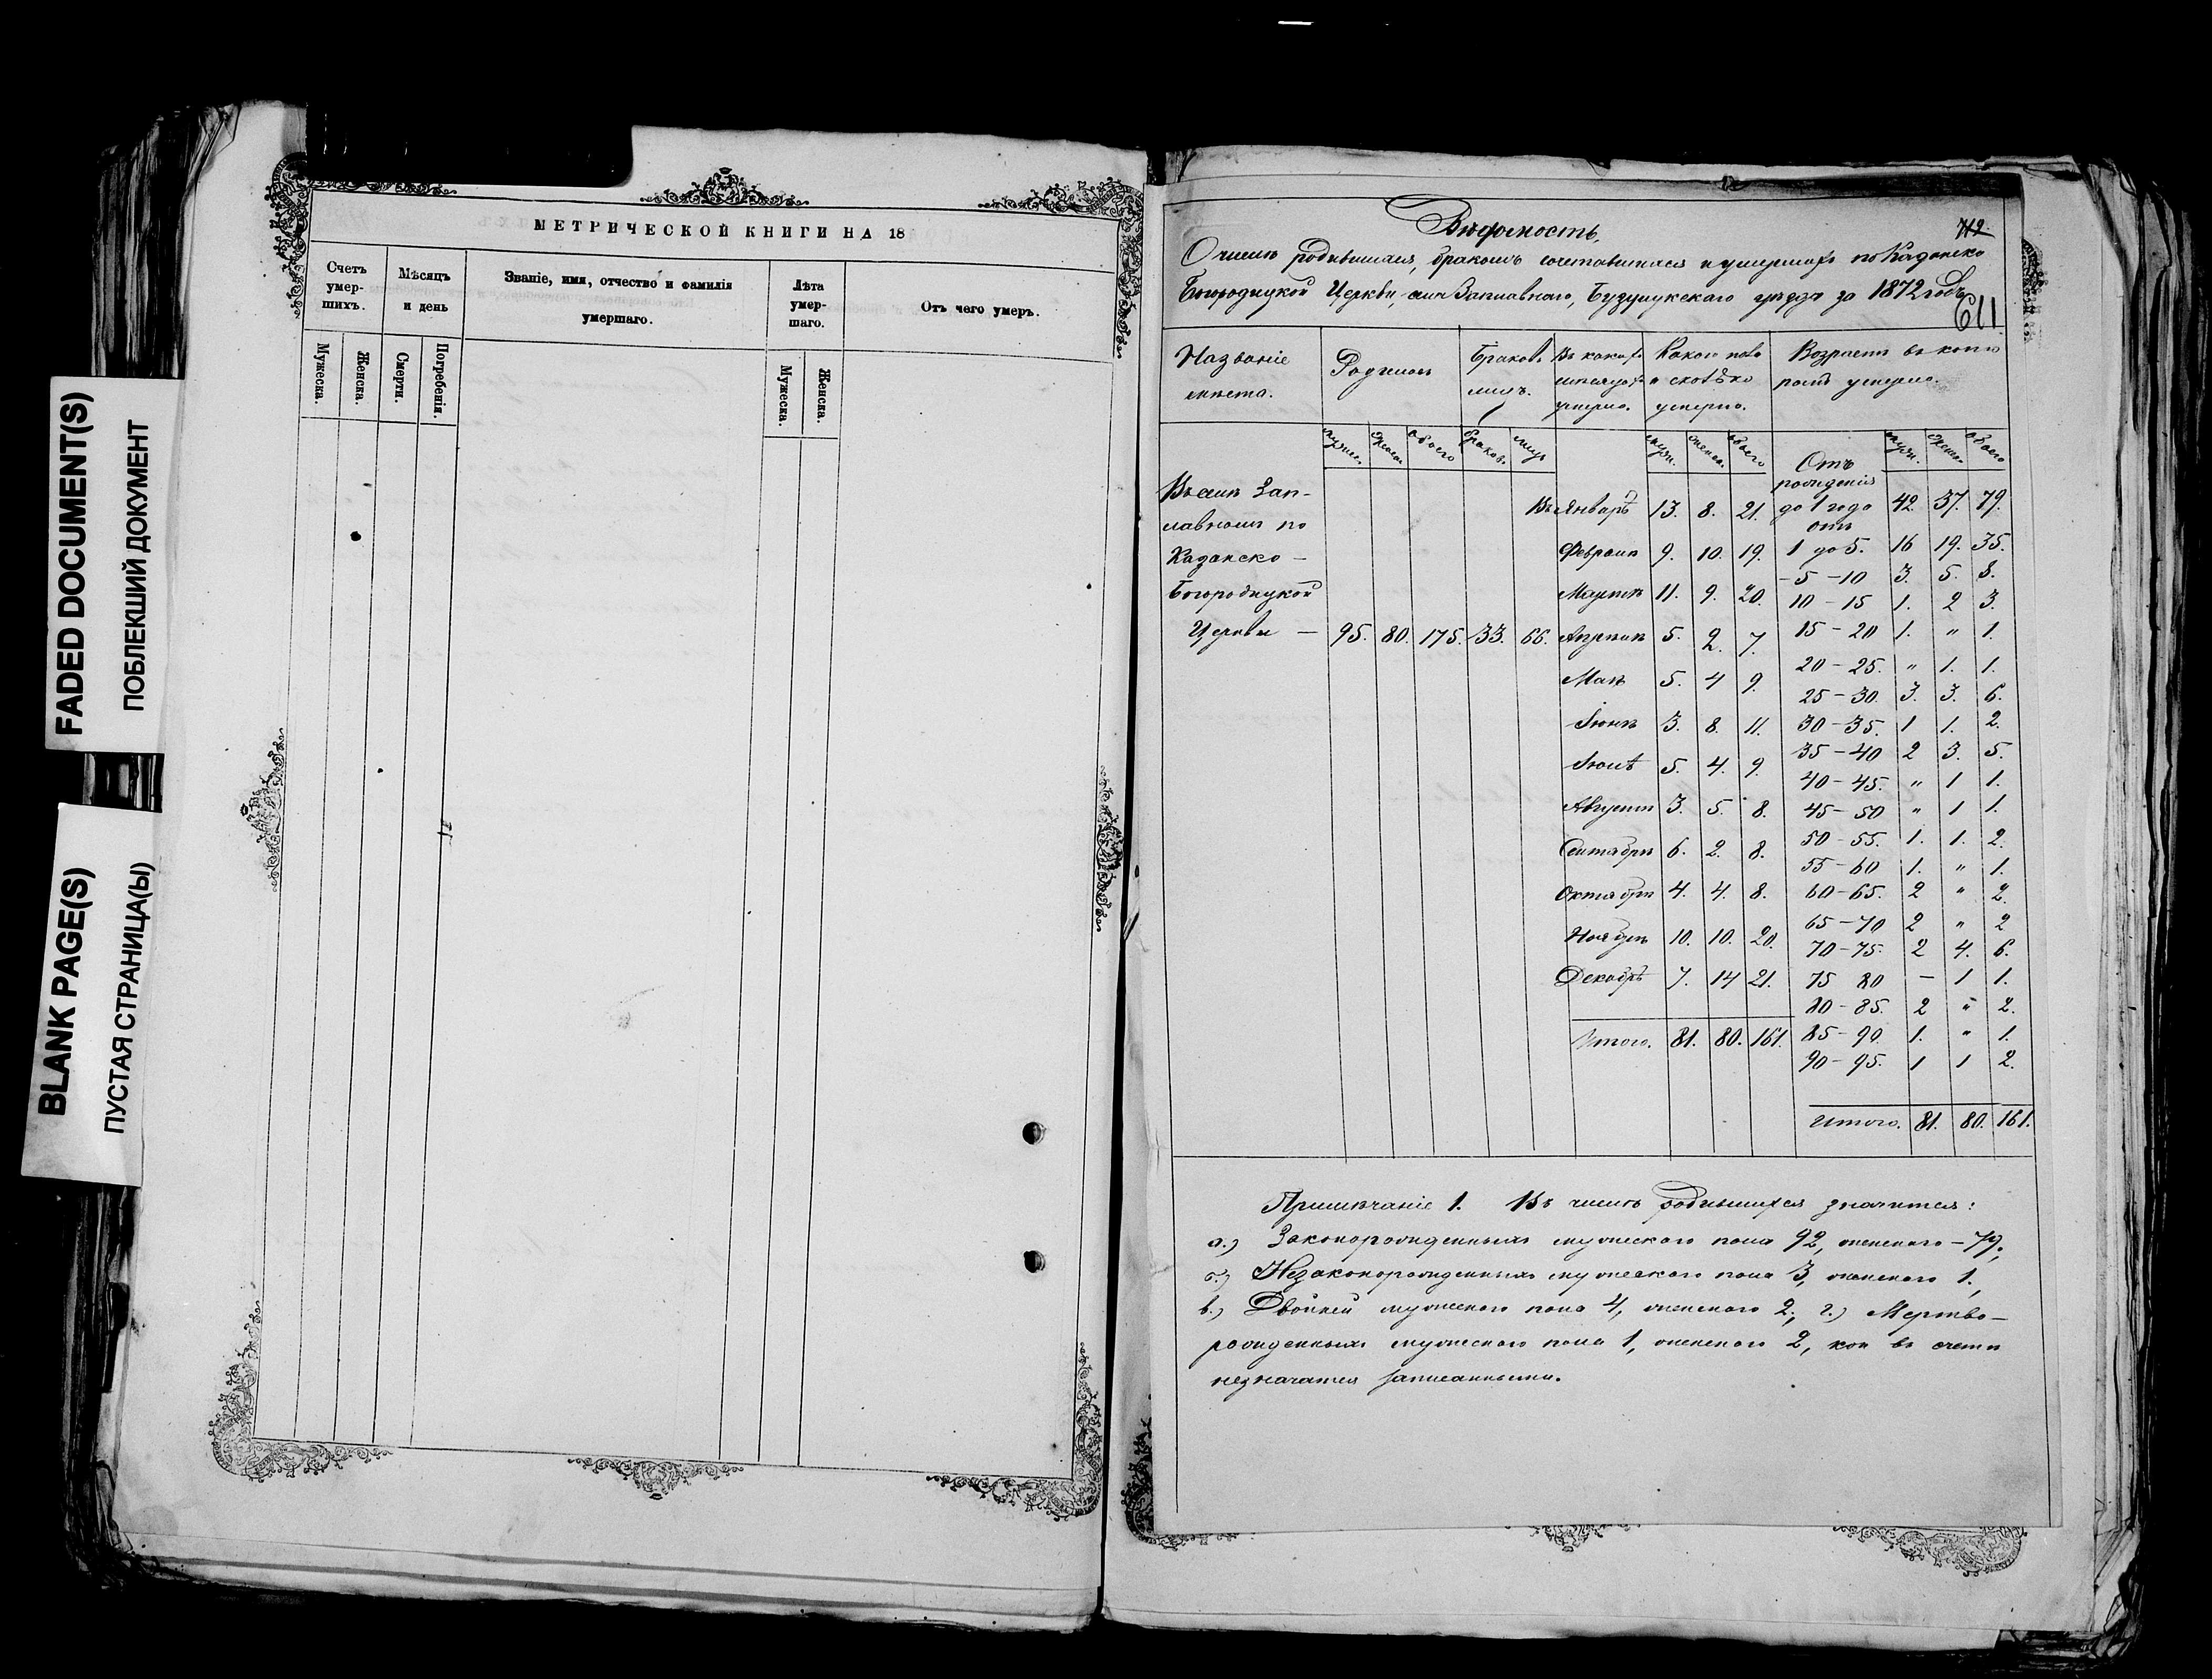 FADED DOCUMENT(S)
ПОБЛЕКШИЙ ДОКУМЕНТ
BLANK PAGE(S)
ПУСТАЯ СТРАНИЦА(Ы)
МЕТРИЧЕСКОЙ КНИГИ НА 18
Счетъ умер-шихъ.
Мѣсяцъ и день
Званіе, имя, отчество и фамилія умершаго.
Лѣта умер-шаго.
Отъ чего умеръ.
Мужеска.
Женска.
Смерти.
Погребенія.
Мужеска.
Женска.
Вѣдомость,
712
О числѣ родившихся, бракомъ сочетавшихся и умершихъ по Казанско
Богородицкой Церкви, села Заплавнаго, Бузулукскаго уѣзда за 1872 годъ
611
Названіе мѣста.
Браков. лицъ.
Въ какихъ мѣсяцахъ умерло.
Какого пола и сколько умерло.
мужес. женск. обоего браков. лицъ
мужи. женск. обоего
Отъ рожденія
мужи. женск. обоего
Въ селѣ Зап-
Въ Январѣ 13. 8. 21. до 1 года 42. 37. 79.
лавномъ по
отъ
Казанско –
Февралѣ 9. 10. 19. 1 до 5. 16 19. 35.
– 5 – 10 3. 5. 8.
Богородицкой
Мартѣ 11. 9. 20. 10 – 15 1. 2 3.
Церкви — 95. 80. 175. 33. 66. Апрѣлѣ 5. 2. 7. 15 – 20 1. " 1.
20 – 25. " 1. 1.
Маѣ 5. 4 9. 25 – 30. 3. 3. 6.
Іюнѣ 3. 8. 11. 30 – 35. 1 1. 2.
35 – 40 2 3. 5.
Іюлѣ 5. 4. 9. 40 – 45. " 1 1.
Августѣ 3. 5. 8. 45 – 50 " 1 1.
50 – 55. 1. 1. 2.
Сентябрѣ 6. 2. 8. 55 – 60 1. " 1.
Октябрѣ 4. 4. 8. 60 – 65. 2 " 2.
65 – 70 2 " 2
Ноябрѣ 10. 10. 20. 70 – 75. 2 4. 6.
Декабрѣ 7. 14 21. 75 80 – 1 1.
80 – 85. 2 " 2.
Итого. 81. 80. 161. 85 – 90. 1. " 1.
90 – 95. 1 1 2.
Итого. 81. 80. 161.
Примѣчаніе 1. Въ числѣ родившихся значится:
а.) Законорожденныхъ мужескаго пола 92, женскаго – 79;
б.) Незаконорожденныхъ мужескаго пола 3, женскаго 1,
в.) Двойней мужескаго пола 4, женскаго 2; г.) Мертво–
рожденныхъ мужескаго пола 1, женскаго 2, кои въ счетѣ
незначатся записанными.